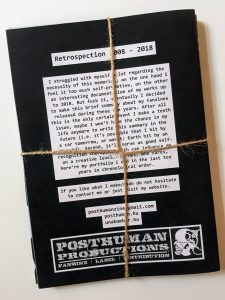 Retrospection 2008 - 2018
I struggled with myself a lot regarding the
necessity of this memorial; on the one hand I
feel it too much self-promotive, on the other
an interesting document also of my works up
to 2018. But fuck it, eventually I decided
to make this brief summary about my fanzines
released during these ten years. After all
this is the only certain event I make a tenth
issue, maybe I won't have the chance in my
life anymore to write this summary in the
future (i.e. it's possible that I'll hit by
a car tomorrow, or the Earth hit by an
it'll serve as good self-
recognition
on a creative level.
here're my portfolio in the last ten
years in chronological order.
If you like what I make/made do not hesitate
to contact me or just visit my website.
posthumanzine@gmail.com
posthuman.hu
unabomber.hu
POSTHUMAN
PRODUCTIONS
FANZINE | LABEL | DISTRIBUTION